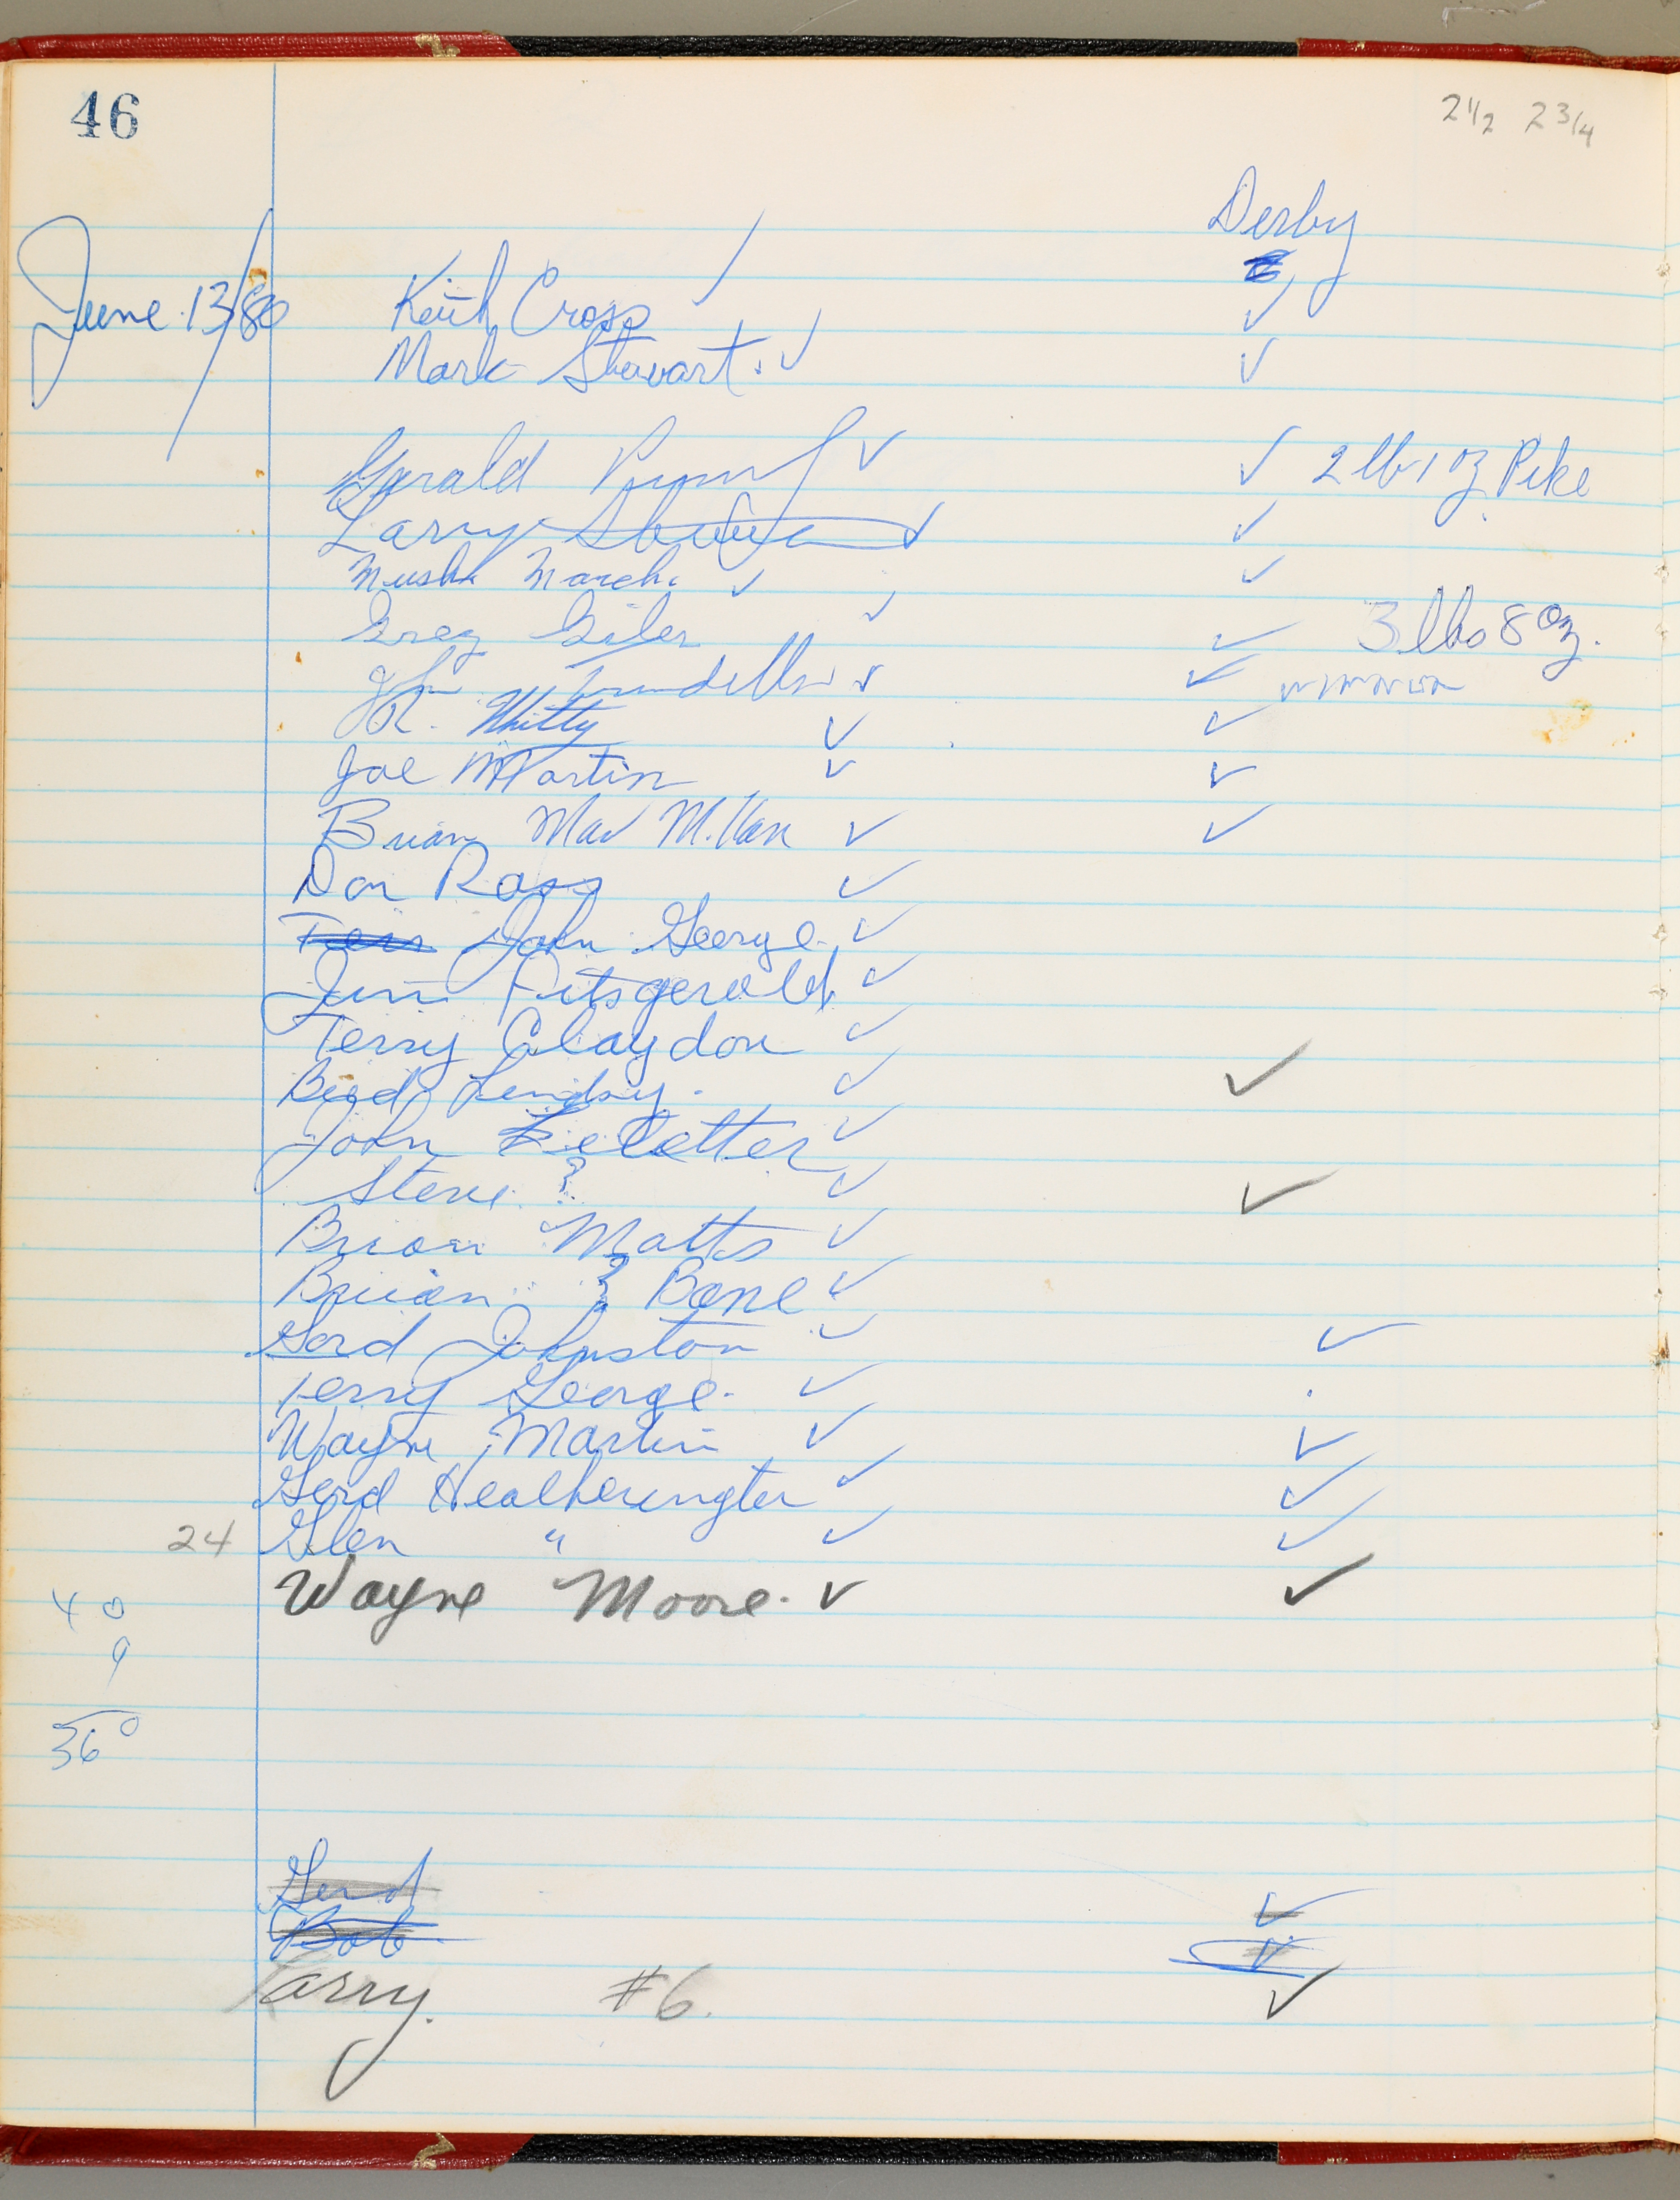 46
2 1/2 2 3/4
Derby
June 13/80 Keith Cross ✓ ✓
Mark Stewart. ✓ ✓
Gerald ✓ ✓ 2 lb 1 oz Pike
Larry ✓ ✓
Mush March. ✓ ✓
Greg Giler ✓ ✓ 3 lbs 8 oz.
✓ ✓
R. Whitty ✓ ✓
Joe Martin ✓ ✓
Brian Mac ✓ ✓
Don Ross ✓
John George. ✓
Jim Fitsgerald ✓
Terry Claydon ✓
Lindsy. ✓ ✓
John ✓
Steve ? ✓ ✓
Brian Matts ✓
Brian ? Bone ✓
Gord Johnston ✓ ✓
Terry George. ✓
Wayne Martin ✓ ✓
Gord Heatherington ✓ ✓
24 Glen " ✓ ✓
Wayne Moore. ✓ ✓
40
9
360
Gord ✓
Bob ✓
Larry. #6. ✓